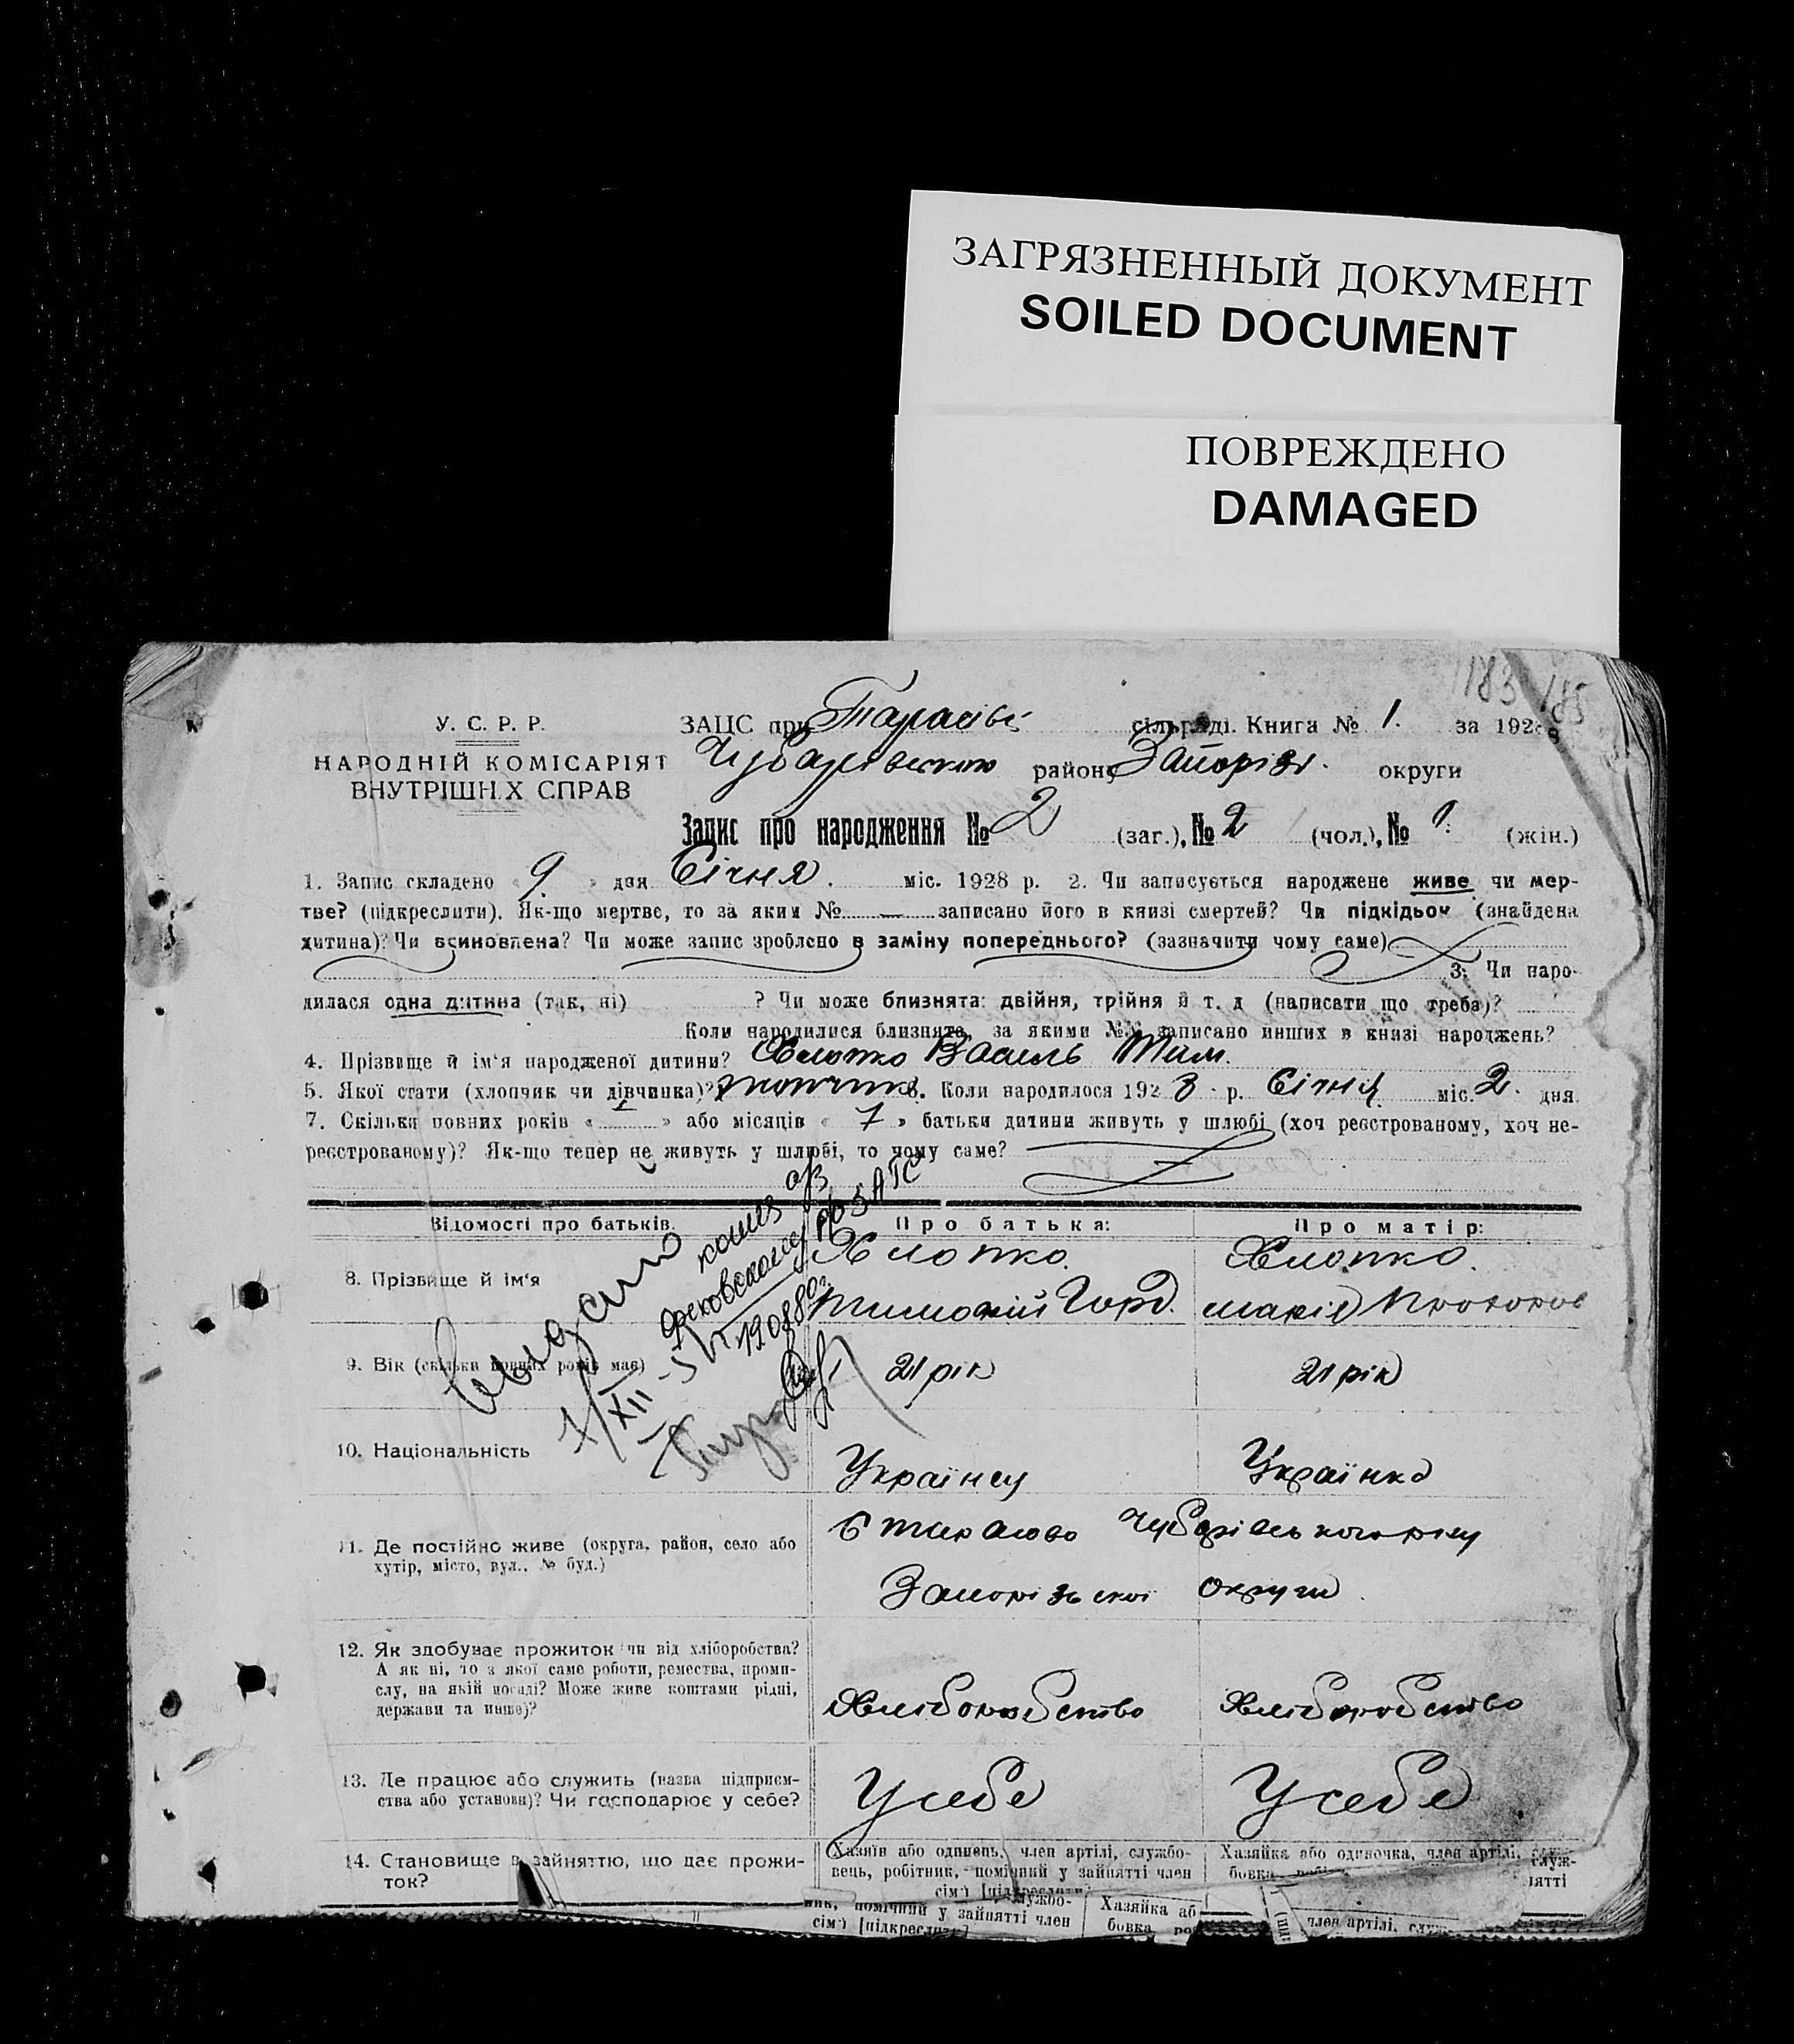 ЗАГРЯЗНЕННЫЙ ДОКУМЕНТ
SOILED DOCUMENT
ПОВРЕЖДЕНО
DAMAGED
183 185
У. С. Р. Р.
НАРОДНІЙ КОМІСАРІЯТ
ВНУТРІШНІХ СПРАВ
ЗАЦС при Тарасівс сільраді. Книга № 1. за 1928
Чубарівською району Запоріз. округи
Запис про народження № 2 (заг.), № 2 (чол.), № (жін.)
1. Запис складено « 9 » дня Січня. міс. 1928 р. 2. Чи записується народжене живе чи мер-
тве? (підкреслити). Як-що мертве, то за яким № — записано його в книзі смертей? Чи підкідьок (знайдена
дитина)? Чи всиновлена? Чи може запис зроблено в заміну попереднього? (зазначити чому саме)
3. Чи наро-
дилася одна дитина (так, ні) ? Чи може близнята: двійня, трійня й т. д (написати що треба)?
Коли народилися близнята, за якими №№ записано инших в книзі народжень?
4. Прізвище й ім'я народженої дитини? Хлопко Василь Тим.
5. Якої стати (хлопчик чи дівчинка)? хлопчик 6. Коли народилося 1928 р. Січня міс. 2. дня
7. Скільки повних років « » або місяців « 7 » батьки дитини живуть у шлюбі (хоч реєстрованому, хоч не-
реєстрованому)? Як-що тепер не живуть у шлюбі, то чому саме?
Відомості про батьків. Про батька: Про матір:
8. Прізвище й ім'я Хлопко. Хлопко.
Тимофій Горд. Марія Прохоров
9. Вік (скільки повних років має) 21 рік 21 рік
10. Національність Українец Українка
11. Де постійно живе (округа, район, село або
хутір, місто, вул., № буд.)
С Тарасово Чубарівського р-ну
Запорізької округи
12. Як здобуває прожиток чи від хліборобства?
А як ні, то з якої саме роботи, ремества, проми-
слу, на якій посаді? Може живе коштами рідні,
держави та инше)?
Хліборобство Хліборобство
13. Де працює або служить (назва підприєм-
ства або установи)? Чи господарює у себе?
У себе У себе
14. Становище в зайняттю, що дає прожи-
ток?
Хазяїн або одинець, член артілі, службо-
вець, робітник, помічний у зайнятті член
сім'ї [підкреслити]
Хазяйка або одиночка, член артілі, служ-
бовка
помічний у зайнятті член
сім'ї [підкреслить]
Хазяйка аб
бовка
член артілі,